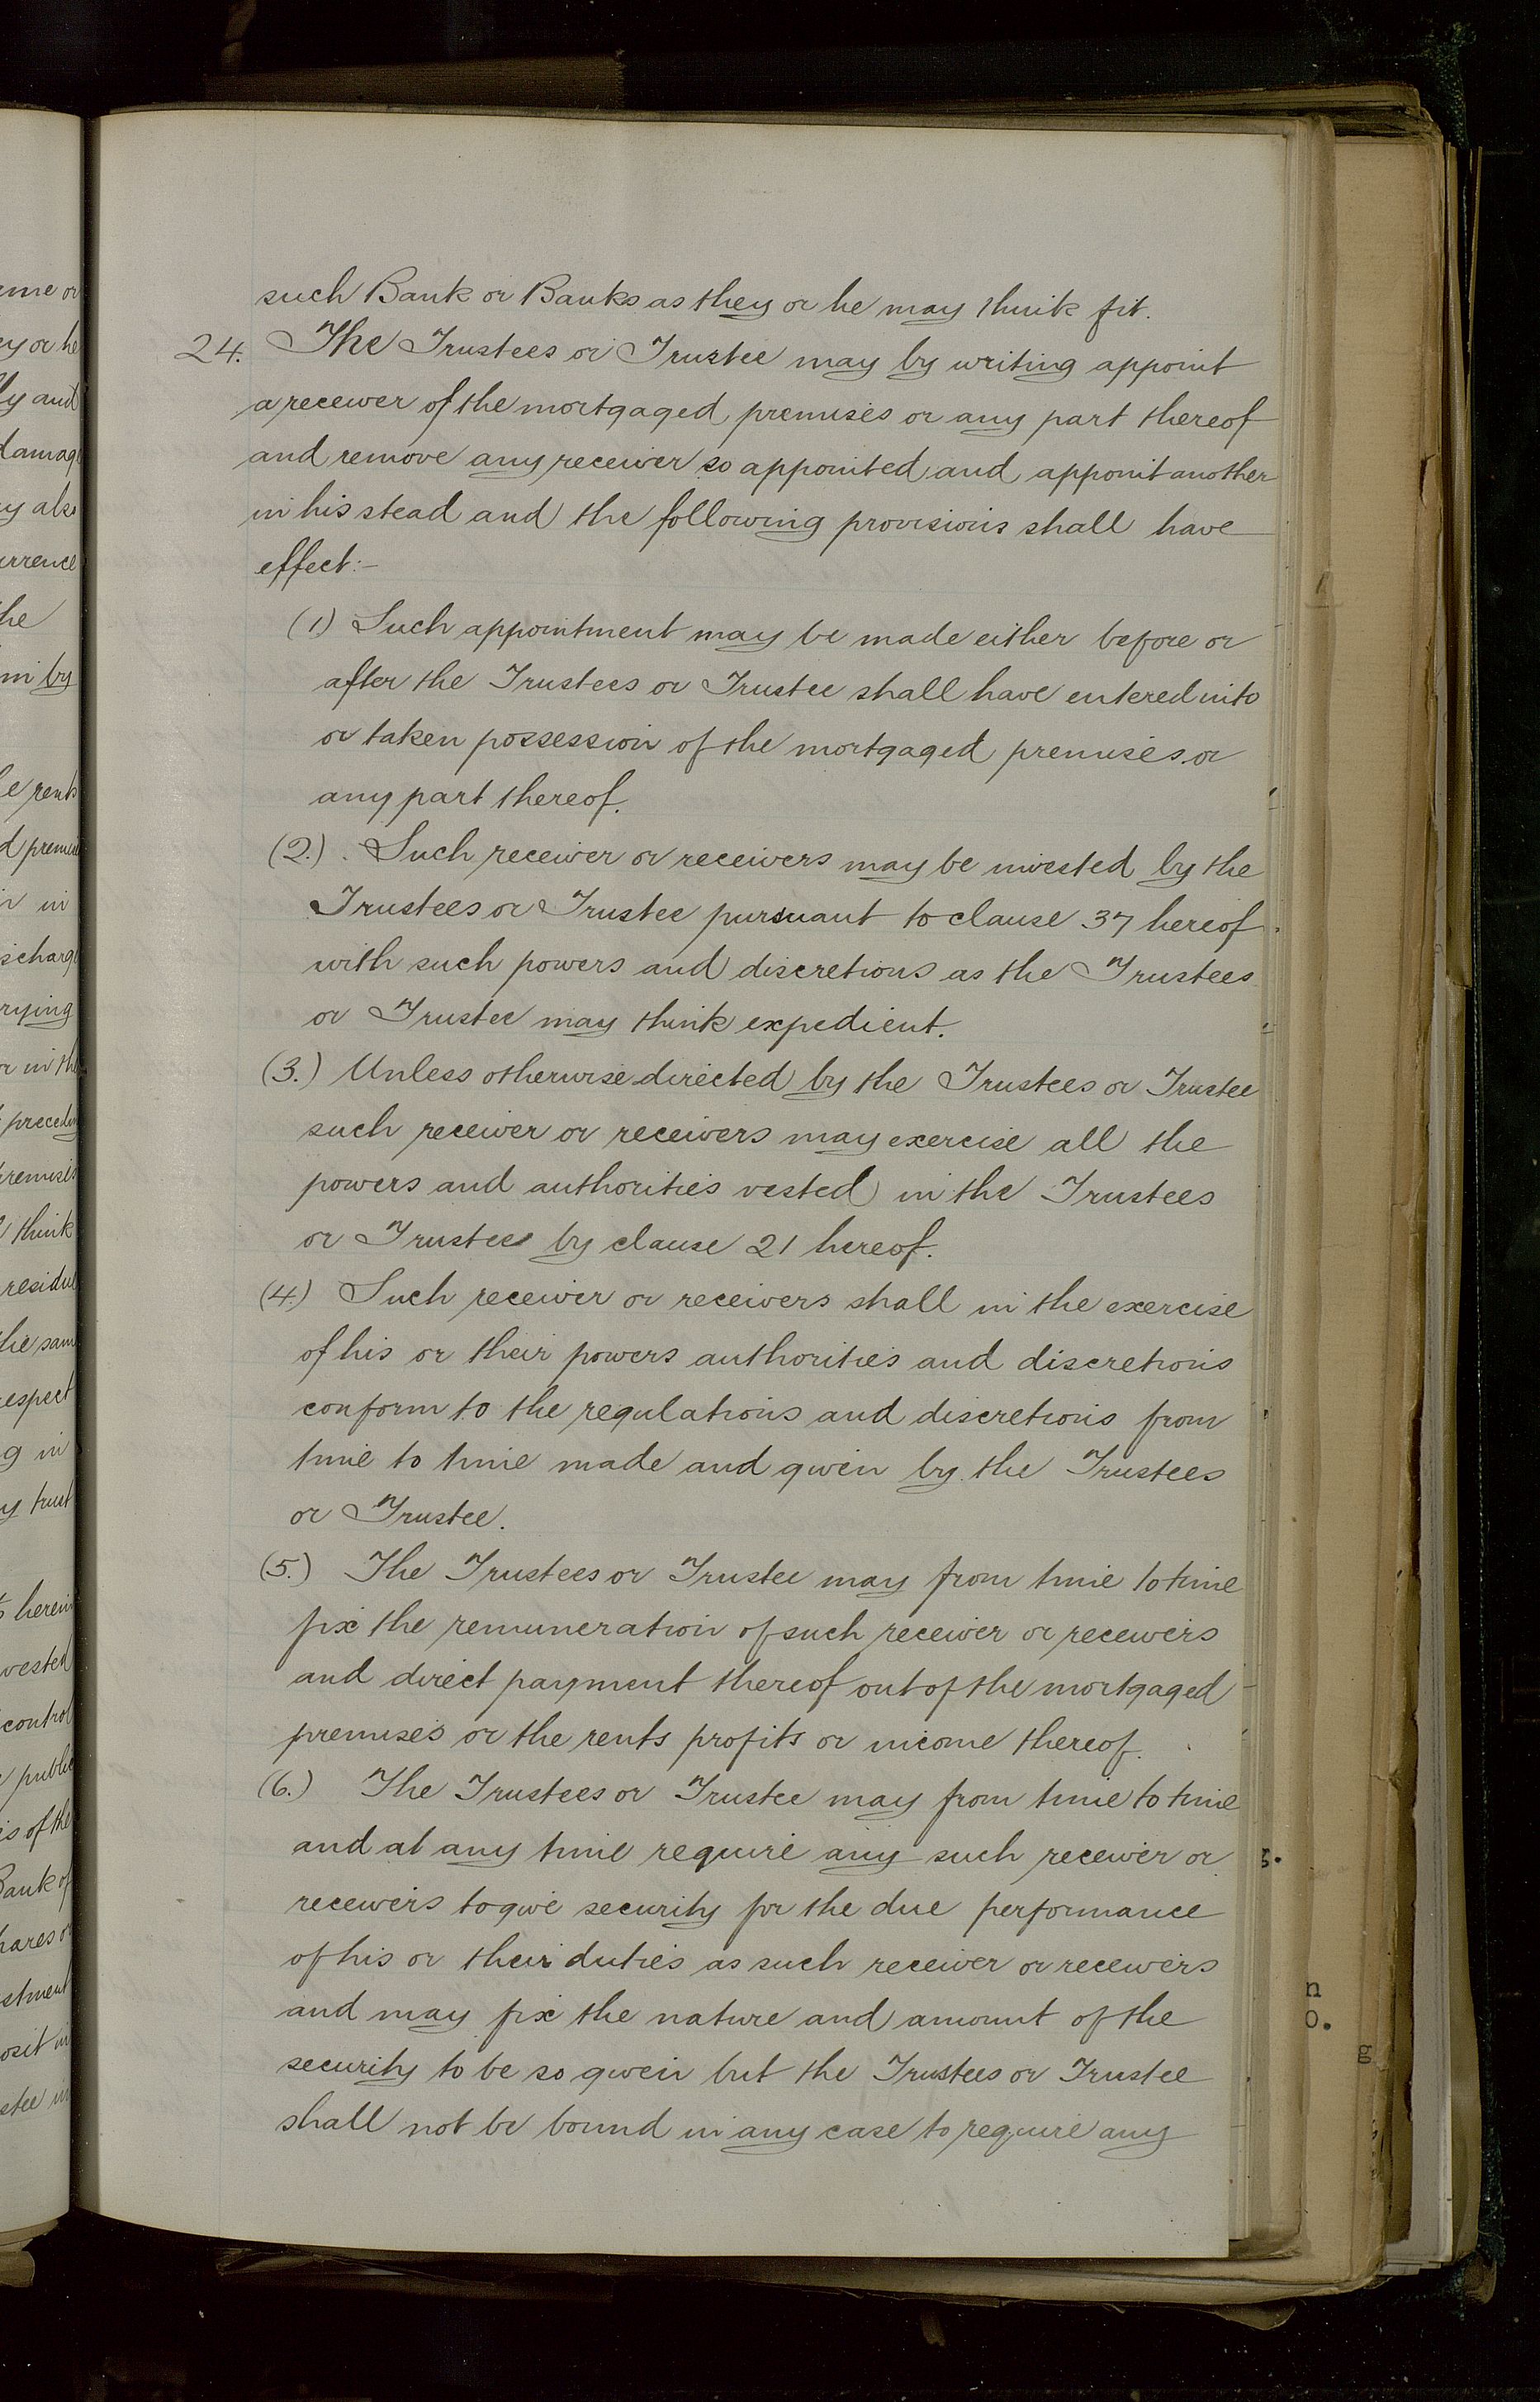 such Bank or Banks as they or he may think fit.
24. The Trustees or Trustee may by writing appoint
a receiver of the mortgaged premises or any part thereof
and remove any receiver so appointed and appoint another
in his stead and the following provisions shall have
effect:-
(1) Such appointment may be made either before or
after the Trustees or Trustee shall have entered into
or taken possession of the mortgaged premises or
any part thereof.
(2.) Such receiver or receivers may be invested by the
Trustees or Trustee pursuant to clause 37 hereof
with such powers and discretions as the Trustees
or Trustee may think expedient.
(3.) Unless otherwise directed by the Trustees or Trustee
such receiver or receivers may exercise all the
powers and authorities vested in the Trustees
or Trustee by clause 21 hereof.
(4.) Such receiver or receivers shall in the exercise
of his or their powers authorities and discretions
conform to the regulations and discretions from
time to time made and given by the Trustees
or Trustee.
(5.) The Trustees or Trustee may from time to time
fix the remuneration of such receiver or receivers
and direct payment thereof out of the mortgaged
premises or the rents profits or income thereof.
(6.) The Trustees or Trustee may from time to time
and at any time require any such receiver or
receivers to give security for the due performance
of his or their duties as such receiver or receivers
and may fix the nature and amount of the
security to be so given but the Trustees or Trustee
shall not be bound in any case to require any